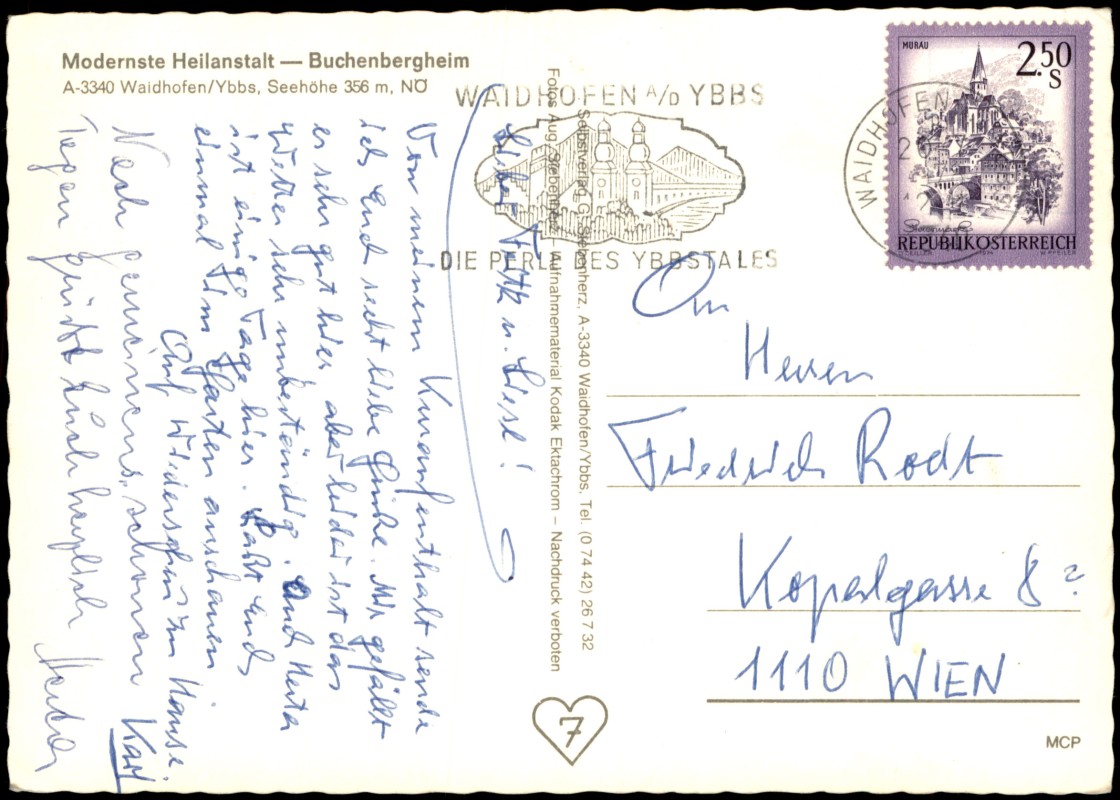 Modernste Heilanstalt — Buchenbergheim
A-3340 Waidhofen/Ybbs, Seehöhe 356 m, NÖ
WAIDHOFEN A/D YBBS
DIE PERLE DES YBBSTALES
MURAU
2.50
S
Steiermark
REPUBLIK ÖSTERREICH
WAIDHOFEN
Lieber Fritz u. Liesl!
Von meinem Kuraufenthalt sende
ich Euch recht liebe Grüße. Mir gefällt
es sehr gut hier aber leider ist das
Wetter sehr unbeständig. Auch Herta
ist einige Tage hier. Laßt Euch
einmal im Garten anschauen
Auf Wiedersehen zu Hause.
Karl
Nach gemeins. schönen
Tagen grüßt Euch herzlich Herta
Selbstverlag G. Siebenherz, A-3340 Waidhofen/Ybbs, Tel. (0 74 42) 26 7 32
Fotos Aug. Siebenherz – Aufnahmematerial Kodak Ektachrom – Nachdruck verboten
An
Herrn
Friedrich Rodt
Kopalgasse 8?
1110 WIEN
7
MCP